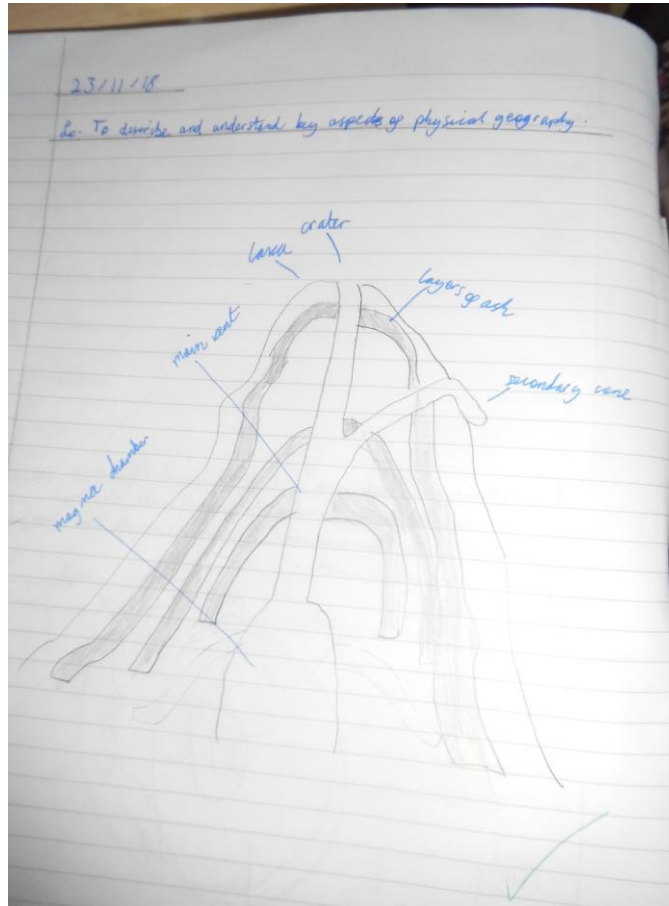 23/11/18
Lo. To describe and understand key aspects of physical geography.
crater
lava
layers of ash
main vent
secondary cone
magma chamber